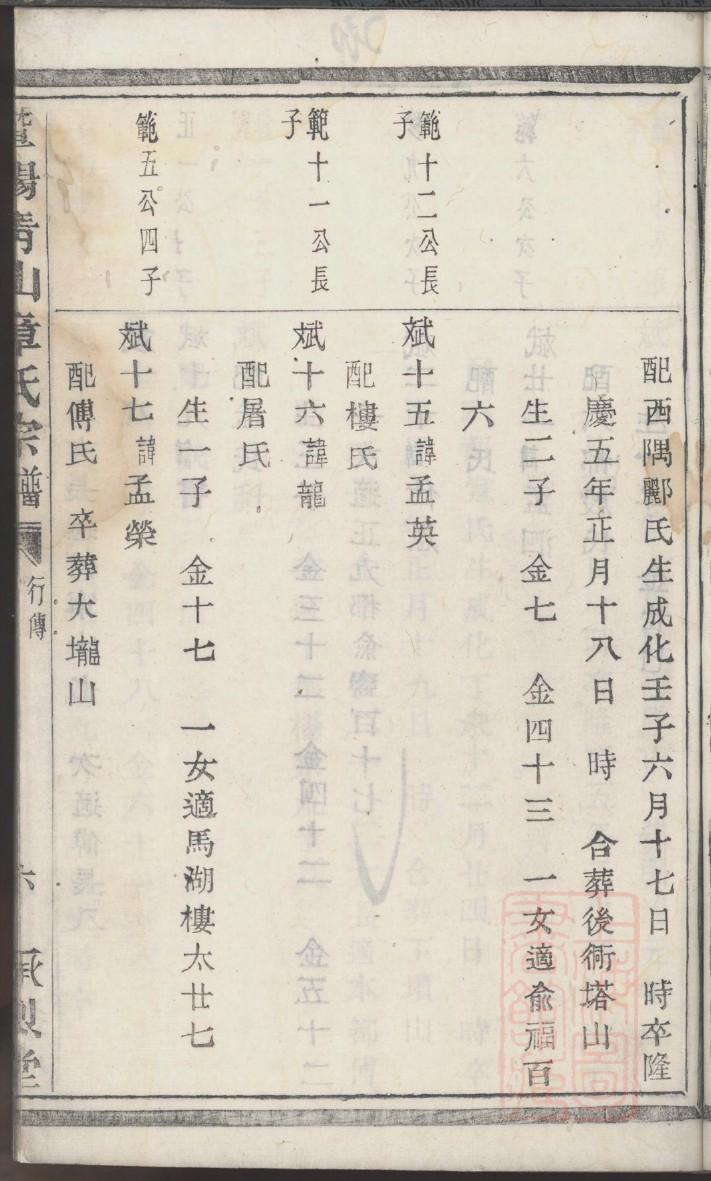 配西隅酈氏生成化壬子六月十七日　時卒隆
慶五年正月十八日　時　合葬後衕塔山
生二子　金七　金四十三　一女適俞福百
六氏
範十二公長
子
斌十五諱孟英
配樓氏
範十一公長
子
斌十六諱龍
配屠氏
生一子　金十七　一女適馬湖樓太廿七
範五公四子
斌十七諱孟榮
配傅氏卒葬大壠山
暨陽青山章氏宗譜
行傳
六